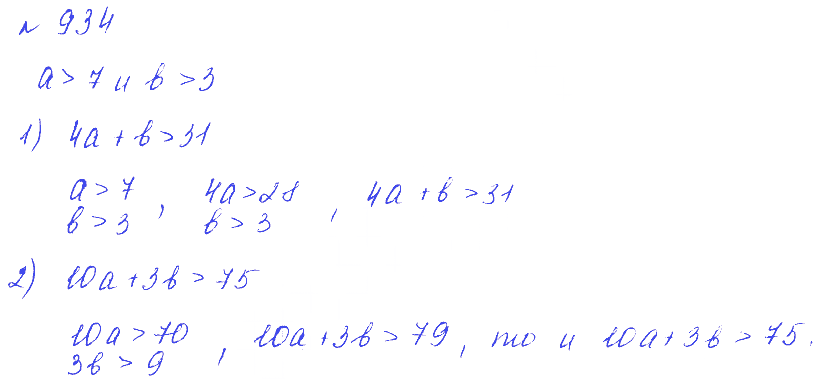 № 934
a > 7 и в > 3
1) 4a + в > 31
a > 7 , 4a > 28 , 4a + в > 31
в > 3 в > 3
2) 10a + 3в > 75
10a > 70 , 10a + 3в > 79, то и 10a + 3в > 75.
3в > 9